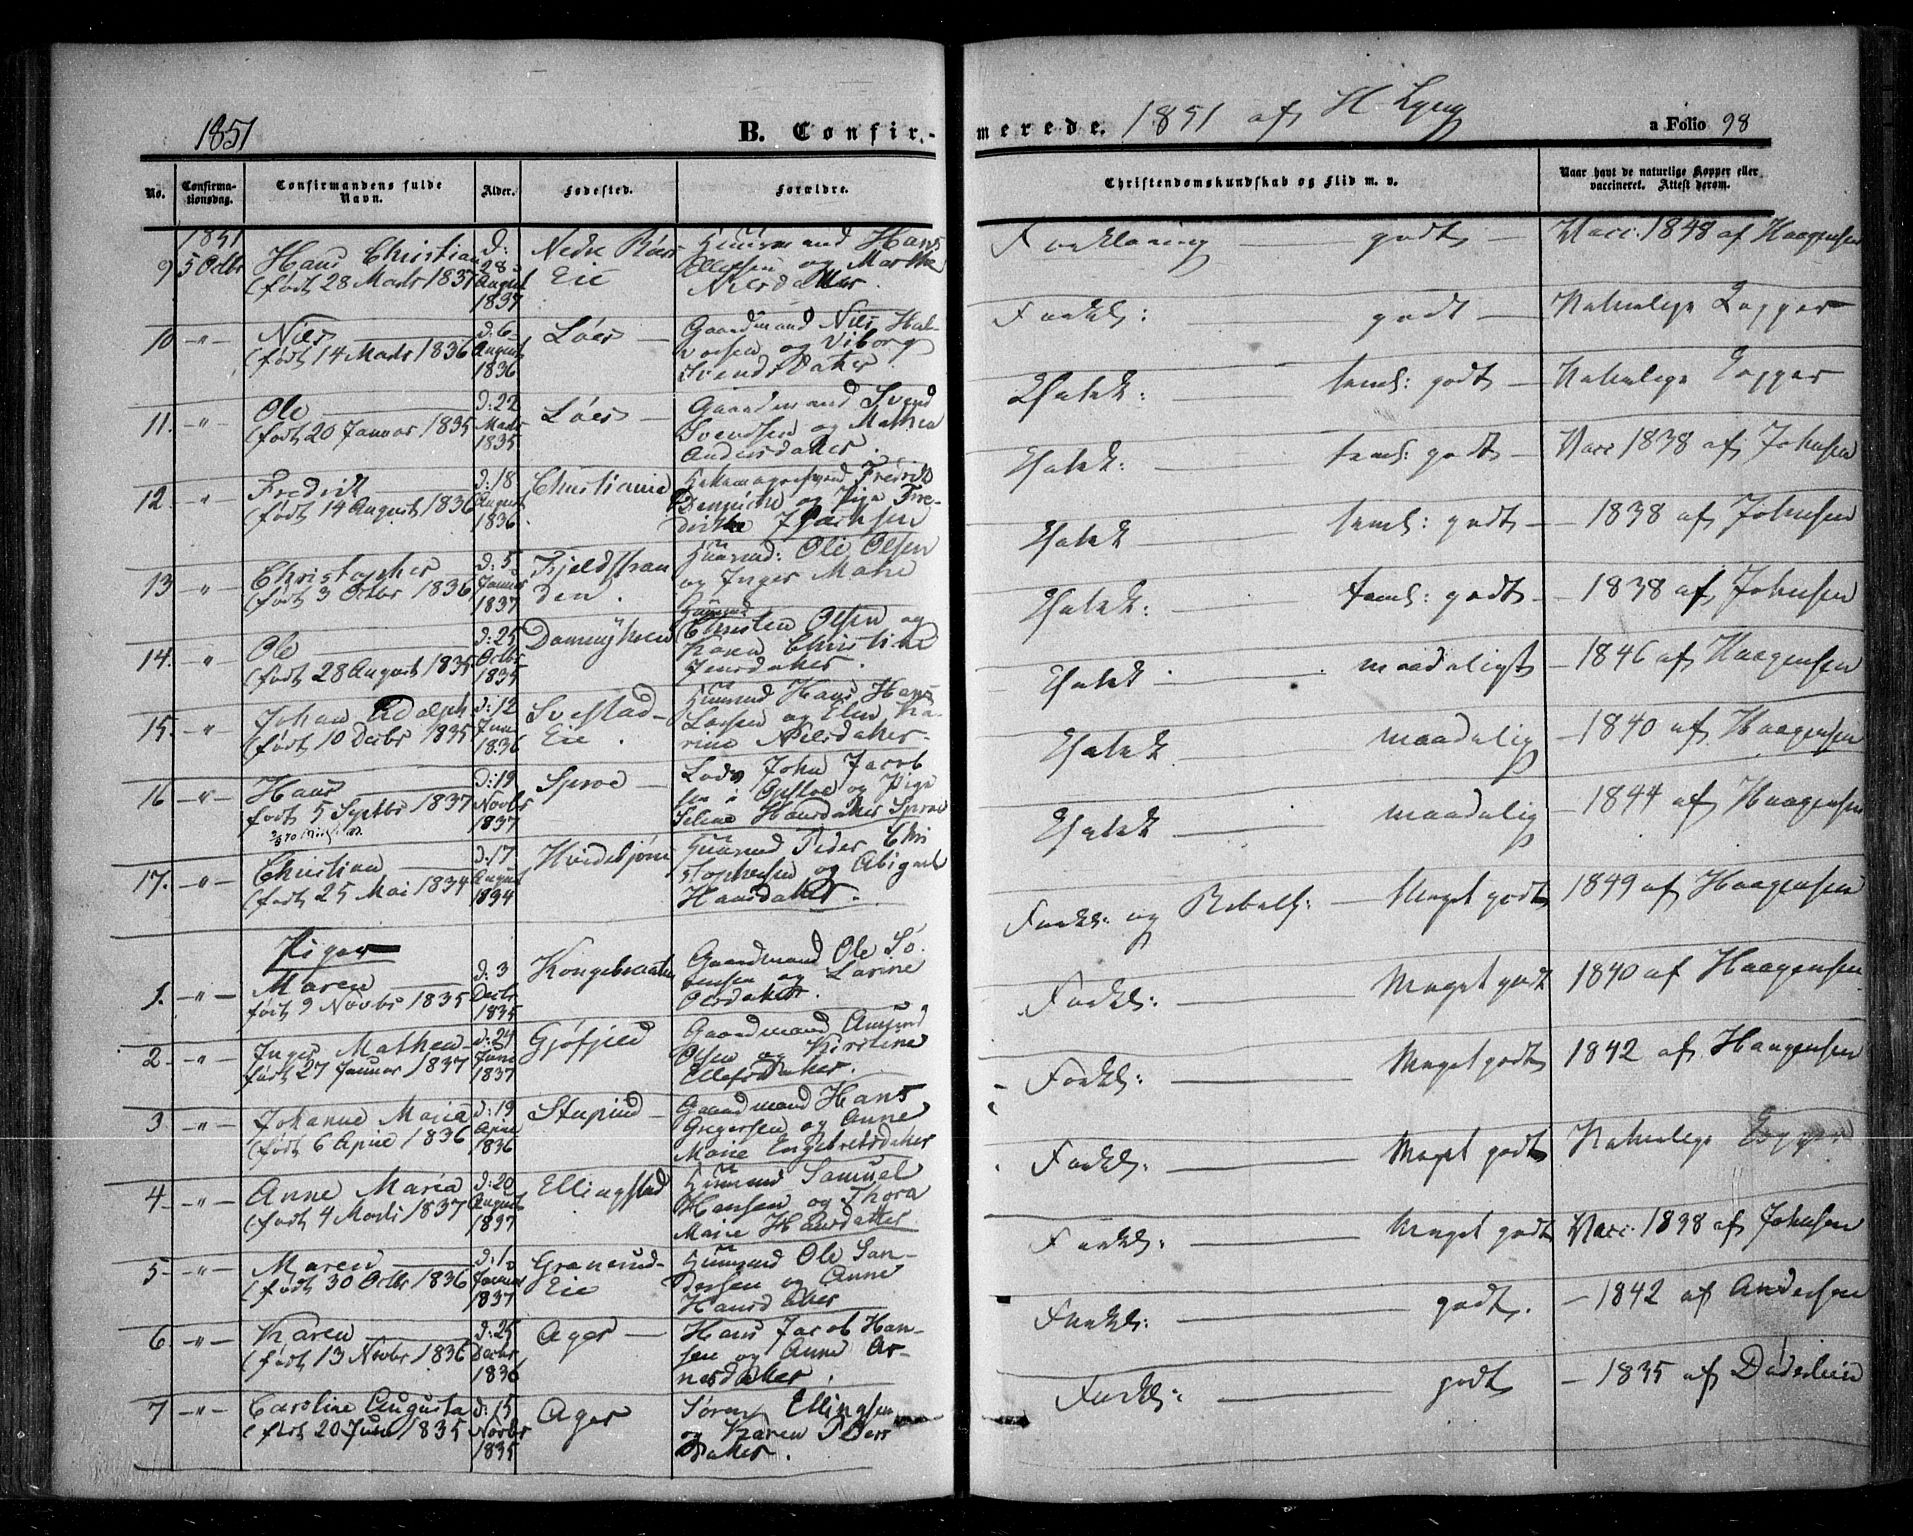 1851
B. Confir-
merede. 1851 af H Lyng
a Folio 98
No.
Confirma-
tionsdag.
Confirmandens fulde
Navn.
Alder.
Fødested.
Forældre.
Christendomskundskab og Flid m. v.
Naar havt de naturlige Kopper eller
vaccineret. Attest derom.
1851
9 5 Octbr Hans Christian
(født 28 Marts 1837
D:
28
August
1837
Nedre
Eie
Huusmand Hans
Ellefsen og Marthe
Nilsdatter.
Forklaring — godt — Vacc. 1848 af Haagensen
10 —"— Nils
(født 14 Marts 1836
D: 6
August
1836
Løes —
Gaardmand Nils Hal-
vorsen og Viborg
Svendsdatter
Forkl: — godt — Naturlige Kopper
11. —"— Ole
(født 20 Januar 1835
D: 22
Marts
1835
Løes —
Gaardmand Svend
Svendsen og Mathea
Andersdatter.
Udtalt: — teml: godt — Naturlige Kopper
12. " Fredrik
(født 14 August 1836
D: 18
August
1836
Christiania
Fredrik
og Pige Fre-
derikke
teml: godt — Vacc 1838 af Johnsen
13 —"— Christopher
(født 3 Octbr 1836
D: 5
Januar
1837
Fjeldstran
den.
Huusmd: Ole Olsen
og Inger Marie
teml: godt — 1838 af Johnsen
14. " Ole
(født 28 August 1835
D: 25
Octbr
1835
Huusmd
Christen Olsen og
Karen Christine
Jensdatter.
teml: godt — 1838 af Johnsen
15. " Johan Adolph
(født 10 Decbr 1835
D: 12
Juni
1836
Svestad-
Eie.
Huusmd Hans Hans
Larsen og Elen Ka-
rine Nilsdatter
maadeligt — 1846 af Haagensen
16 —"— Hans
født 5 Septbr 1837
D: 19
Novbr
1837
Sproe —
Lods John Jacob
sen i og Pige
Hansdatter Sproe
maadelig — 1840 af Haagensen
17. —"— Christian
(født 25 Mai 1834
D: 17
August
1834
Hvidebjørn
Huusmd Peder Chri
stophersen og Abigael
Hansdatter.
maadelig — 1844 af Haagensen
Piger
1. —"— Maren
født 9 Novbr 1835
D: 3
Decbr
1835
Gaardmand Ole Sø-
rensen og Karine
Olesdatter.
Forkl: og — Meget godt 1849 af Haagensen
2 —"— Inger Mathea
født 27 Januar 1837
D: 24
Juni
1837
Gjøfjeld
Gaardmand Amund
Olsen og Kirstine
Ellefsdatter.
Forkl: — Meget godt 1840 af Haagensen
3 —"— Johanne Maria
(født 6 April 1836
D: 19
April
1836
Stupind —
Gaardmand Hans
Gregersen og Anne
Marie Engebretsdatter
Forkl: — Meget godt 1842 af Haagensen
4 —"— Anne Maria
(født 4 Marts 1837
D: 20
August
1837
Ellingstad
Huusmd Samuel
Hansen og Thora
Marie Hansdatter
Forkl: — Meget godt Naturlige Kopper
5 —"— Maren
(født 30 Octbr 1836
D: 1
Januar
1837
Granerud-
Eie
Huusmd Ole San-
dersen og Anne
Hansdatter
Forkl: — Meget godt Vacc. 1838 af Johnsen
6 —"— Karen
(født 13 Novbr 1836
D: 25
Decbr
1836
Ager —
Hans Jacob Han-
sen og Anne Ar-
nesdatter.
Forkl: — godt. — 1842 af Andersen
7 —"— Caroline Augusta
(født 20 Juni 1835
D: 15
Novbr
1835
Ager
Søren Ellingsen
og Karen
datter.
Forkl: — godt — 1835 af Døderlein